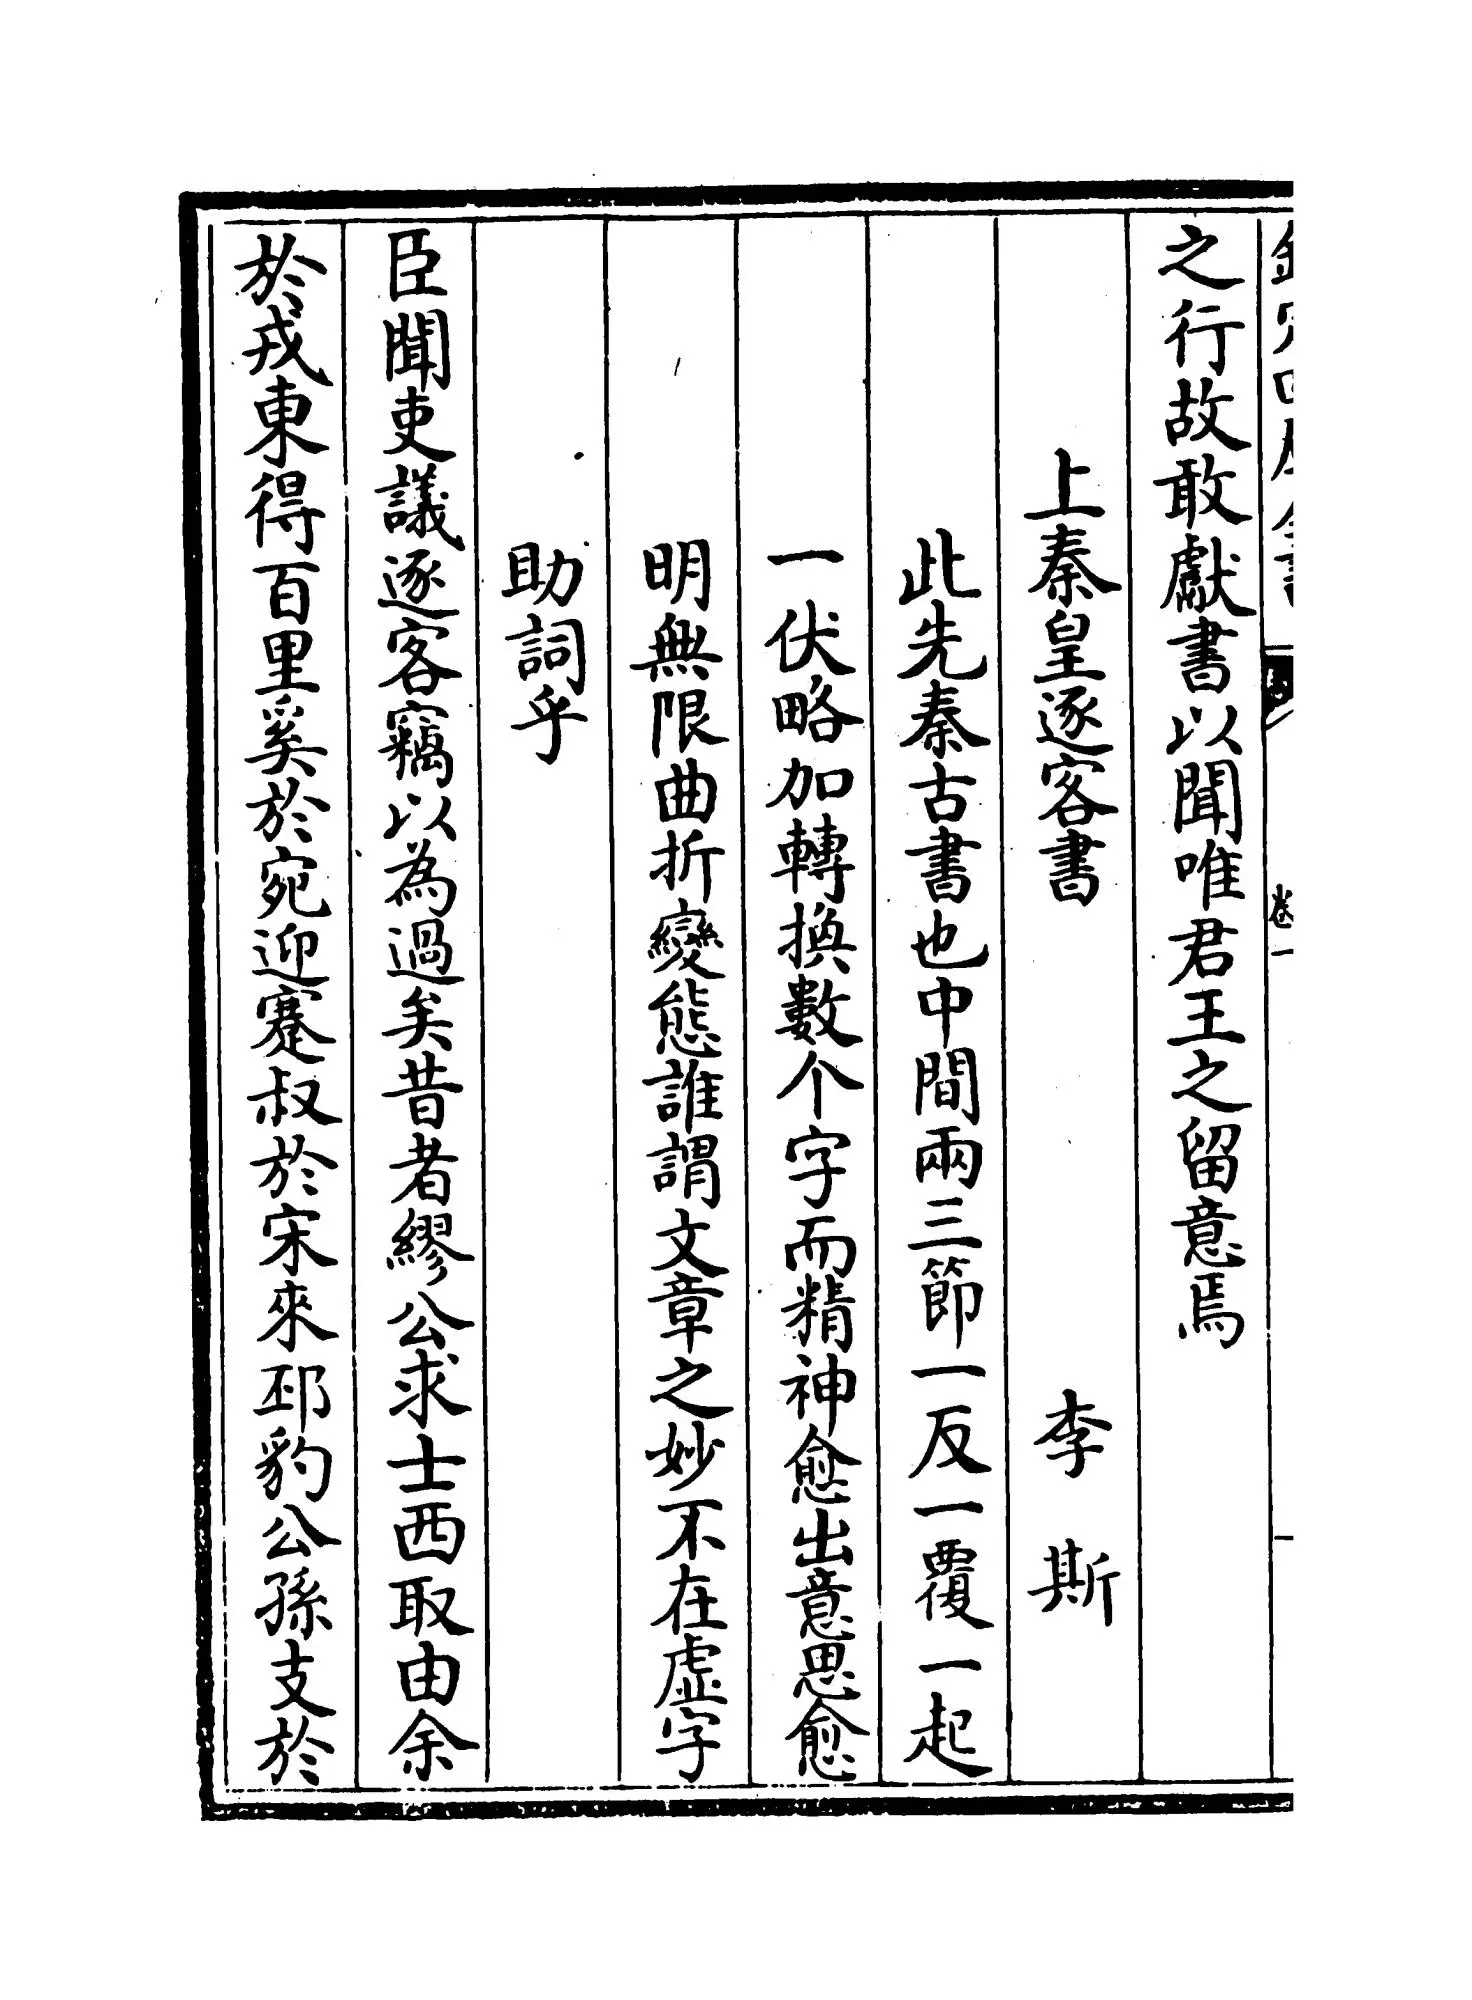 之行故敢獻書以聞唯君王之留意焉
上秦皇逐客書 李斯
此先秦古書也中間兩三節一反一覆一起
一伏略加轉換數个字而精神愈出意思愈
明無限曲折變態誰謂文章之妙不在虛字
助詞乎
臣聞吏議逐客竊以為過矣昔者繆公求士西取由余
於戎東得百里奚於宛迎蹇叔於宋來邳豹公孫支於